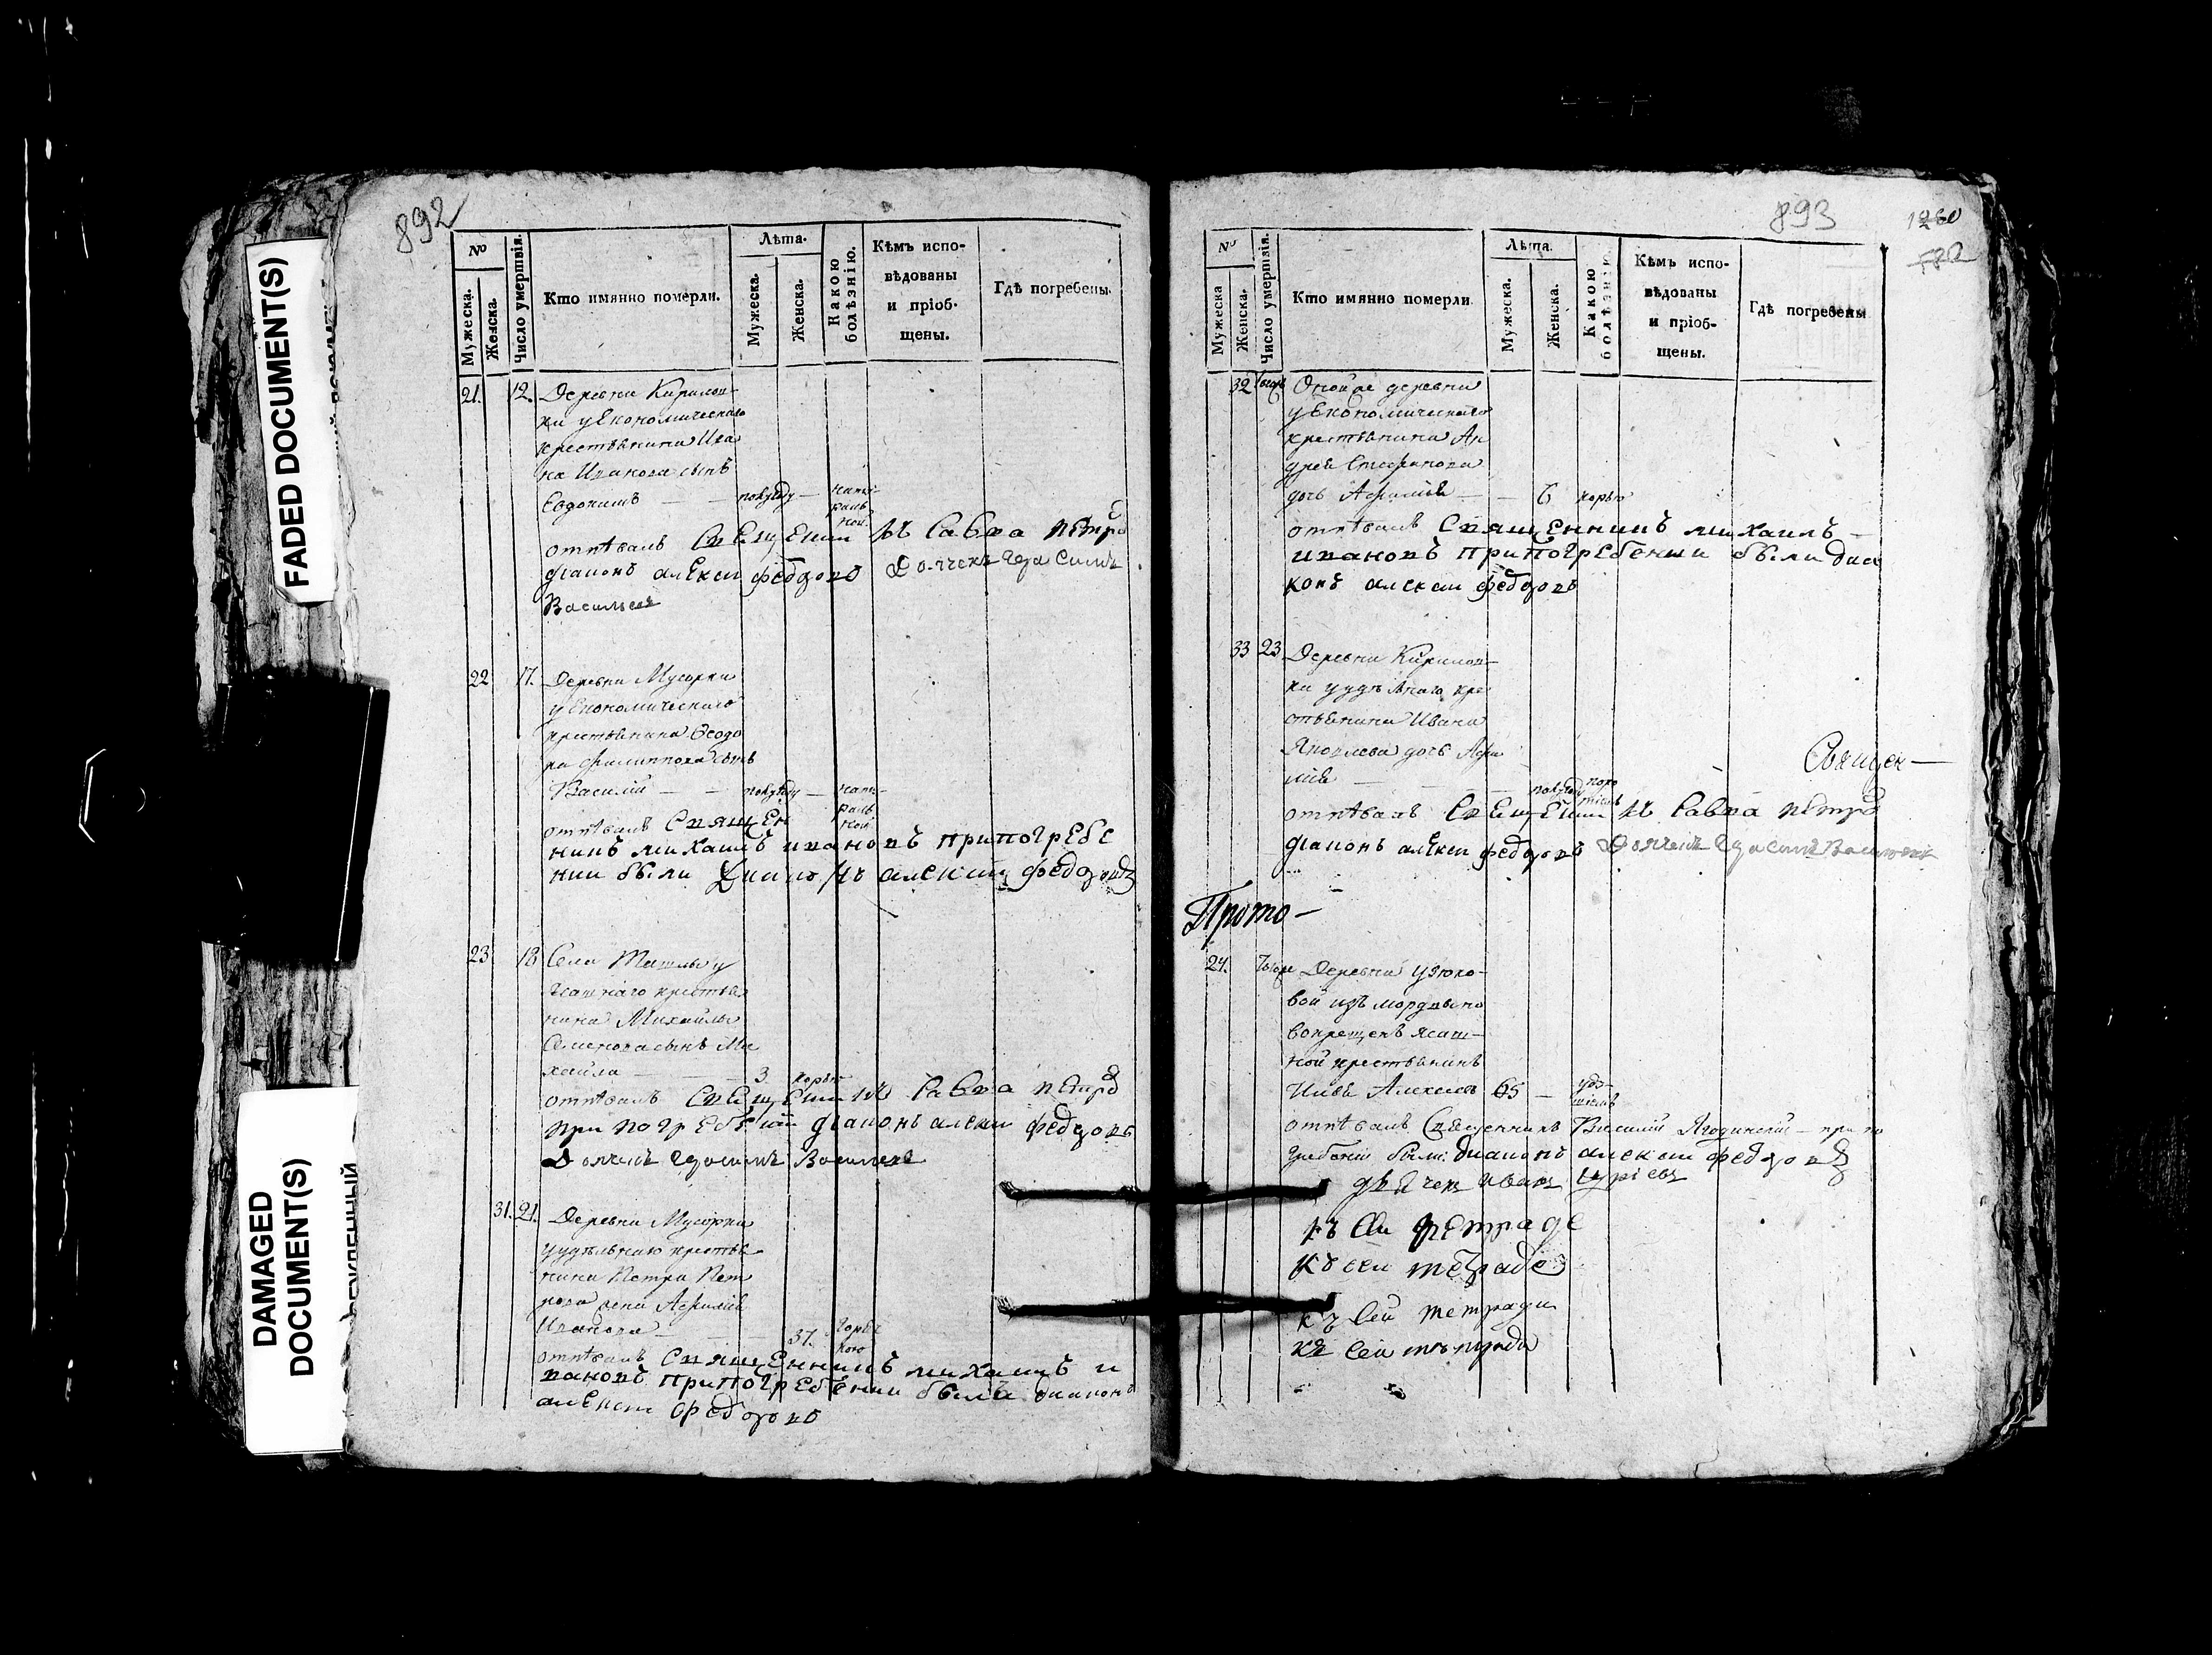 FADED DOCUMENT(S)
DAMAGED
DOCUMENT(S)
892
№
Мужеска.
Женска.
Число умершвія.
Кто имянно померли.
Лѣта.
Мужеска.
Женска.
Какою
болѣзнію.
Кѣмъ испо-
вѣдованы
и пріоб-
щены.
Гдѣ погребены.
21. 12. Деревни Кирилов-
ки у Економическаго
крестьянина Ива
на Иванова сынъ
Евдокимъ — — полугоду — нату-
раль
ной
отпѣвалъ Савва петро
діаконъ алексеи федоровъ Дьячекъ Герасимъ
Васильевъ
22 17. Деревни Мусорки
у Економическаго
крестьянина Ѳеодо
ра Филиппова сынъ
Василій — — полугоду — нату-
раль
ной
отпѣвалъ Священ
никъ михаилъ ивановъ припогребе
нии были алексеи федоровъ
23 18 Села у
ясашнаго крестья
нина Михайлы
Семенова сынъ Ми
хайла — 3 корью
отпѣвалъ Савва петро
при погребении діаконъ алексеи федоровъ
Дьячекъ Герасимъ Васильевъ
31. 21. Деревни Мусорки
у удѣльнаго крестья
нина Петра Пет
рова жена Афимія
Иванова — 37. Горяч
кою
отпѣвалъ Священникъ михаилъ и
вановъ припогребении были диаконъ
алексеи федоровъ
893
1280
№
Мужеска
Женска.
Число умершвія.
Кто имянно померли.
Лѣта.
Мужеска.
Женска.
Какою
болѣзнію
Кѣмъ испо-
вѣдованы
и пріоб-
щены.
Гдѣ погребены
32 Оной же деревни
у Економическаго
крестьянина Ан
дрея Стефанова
дочь Афимія — — 6 корью
отпѣвалъ Священникъ михаилъ
ивановъ припогребении были диа
конъ алексеи федоровъ
33 23 Деревни Кирилов-
ки у удѣльнаго кре
стьянина Ивана
Яковлева дочь Афи
мія — — полугоду
отпѣвалъ Савва петро
діаконъ алексеи федоровъ Дьячекъ Герасимъ Васильевъ
Священ—
Прото—
24. Деревни Узюко-
вой изъ мордвы но
вокрещенъ ясаш-
ной крестьянинъ
Алексеевъ 65 —
отпѣвалъ Священникъ Василій Ягодинский — при по
гребении были: диаконъ алексеи федоровъ
дьячекъ иванъ
къ сеи тетраде
къ сеи тетраде
къ сей тетради
къ сей тетради